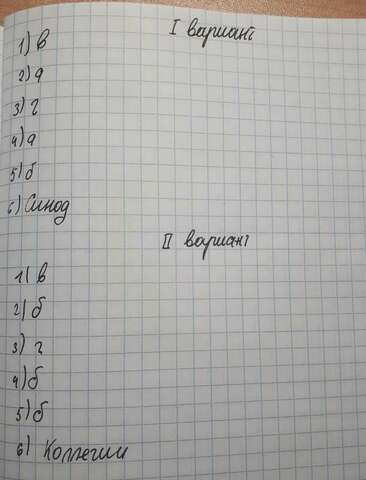 I вариант
1) в
2) а
3) г
4) а
5) б
6) Синод
II вариант
1) в
2) б
3) г
4) б
5) б
6) Коллегии